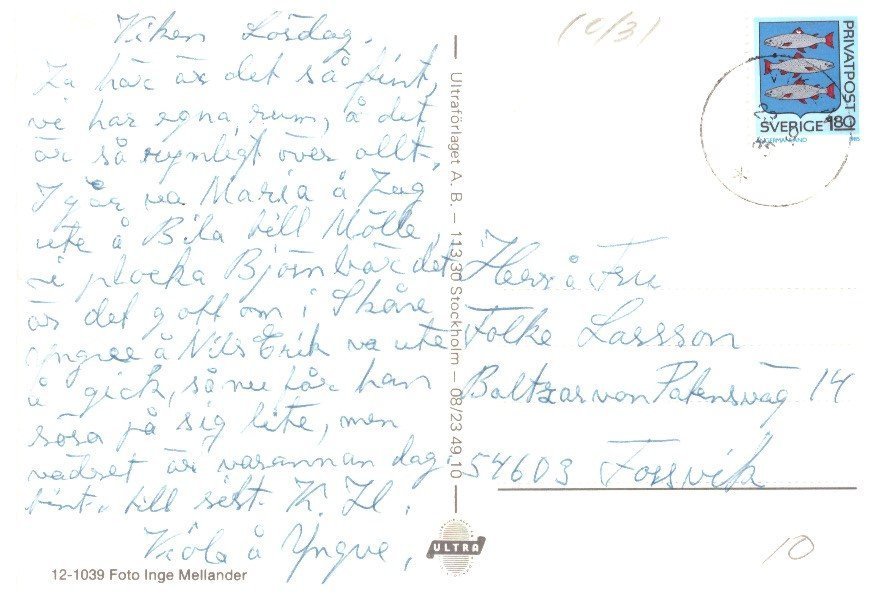 Viken Lördag,
Ja här är det så fint,
vi har egna rum, å det
är så rymligt över allt,
I går va Maria å Jag
ute å Bila till Mölle,
vi plocka Björnbär det
är det gott om i Skåne
Yngve å Nils Erik va ute
å gick, så nu får han
röra på sig lite, men
vädret är varannan dag
fint. till sist. K. Hl.
Viola å Yngve,
12-1039 Foto Inge Mellander
Ultraförlaget A. B. – 113 30 Stockholm – 08/23 49 10
ULTRA
PRIVATPOST
SVERIGE 180
ÅNGERMANLAND
Herr å Fru
Folke Larsson
Baltzar von Platensväg 14
54603 Forsvik
10